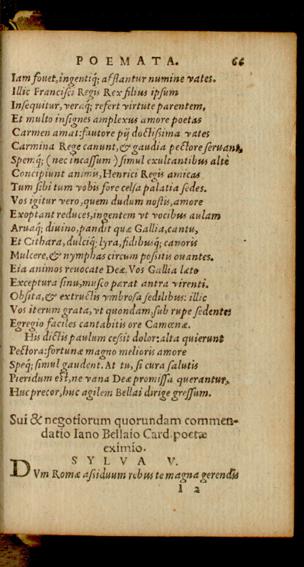 POEMATA. 66
Iam fouet, ingentiq; afflantur numine vates.
Illic Francisci Regis Rex filius ipsum
Insequitur, veraq; refert virtute parentem,
Et multo insignes amplexus amore poetas
Carmen amat: fautore pij doctissima vates
Carmina Rege canunt, & gaudia pectore seruant,
Spemq; (nec incassum) simul exultantibus altè
Concipiunt animis, Henrici Regis amicas
Tum sibi tum vobis fore celsa palatia sedes.
Vos igitur vero, quem dudum nostis, amore
Exoptant reduces, ingentem vt vocibus aulam
Aruaq; diuino, pandit quæ Gallia, cantu,
Et Cithara, dulciq; lyra, fidibusq; canoris
Mulcere, & nymphas circum positis ouantes.
Eia animos reuocate Deæ. Vos Gallia læto
Exceptura sinu, musco parat antra virenti.
Obsita, & extructis vmbrosa sedilibus: illic
Vos iterum grata, vt quondam, sub rupe sedentes
Egregio faciles cantabitis ore Camœnæ.
His dictis paulum cessit dolor: alta quierunt
Pectora: fortunæ magno melioris amore
Speq; simul gaudent. At tu, si cura salutis
Pieridum est, ne vana Deæ promissa querantur,
Huc precor, huc agilem Bellai dirige gressum.
Sui & negotiorum quorundam commen-
datio Iano Bellaio Card. poetæ
eximio.
SYLVA V.
DVm Romæ assiduum rebus te magna gerendis
I 2